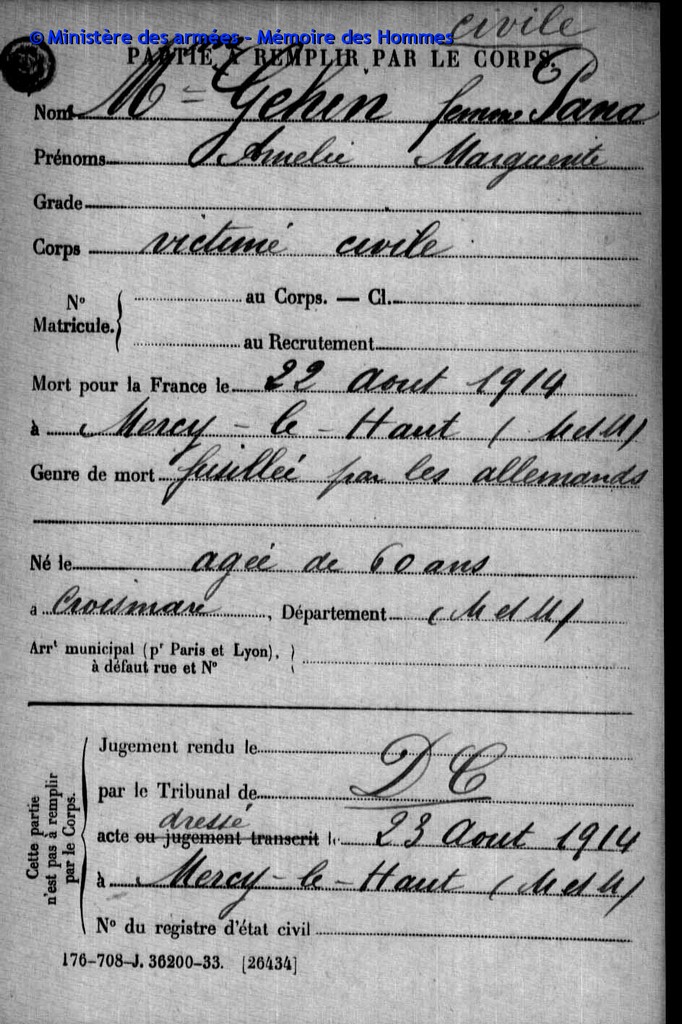 © Ministère des armées - Mémoire des Hommes
civile
PARTIE À REMPLIR PAR LE CORPS.
Nom Mme Gehin femme Pana
Prénoms Amelie Marguerite
Grade
Corps victime civile
N° Matricule. { au Corps. — Cl.
au Recrutement
Mort pour la France le 22 Aout 1914
à Mercy-le-Haut (M et M)
Genre de mort fusillée par les allemands
Né le agée de 60 ans
à Croismare, Département (M et M)
Arrt municipal (pr Paris et Lyon), }
à défaut rue et N°
Cette partie n'est pas à remplir par le Corps.
Jugement rendu le
par le Tribunal de D C
dressé
acte ou jugement transcrit le 23 Aout 1914
à Mercy-le-Haut (M et M)
N° du registre d'état civil
176-708-J. 36200-33. [26434]